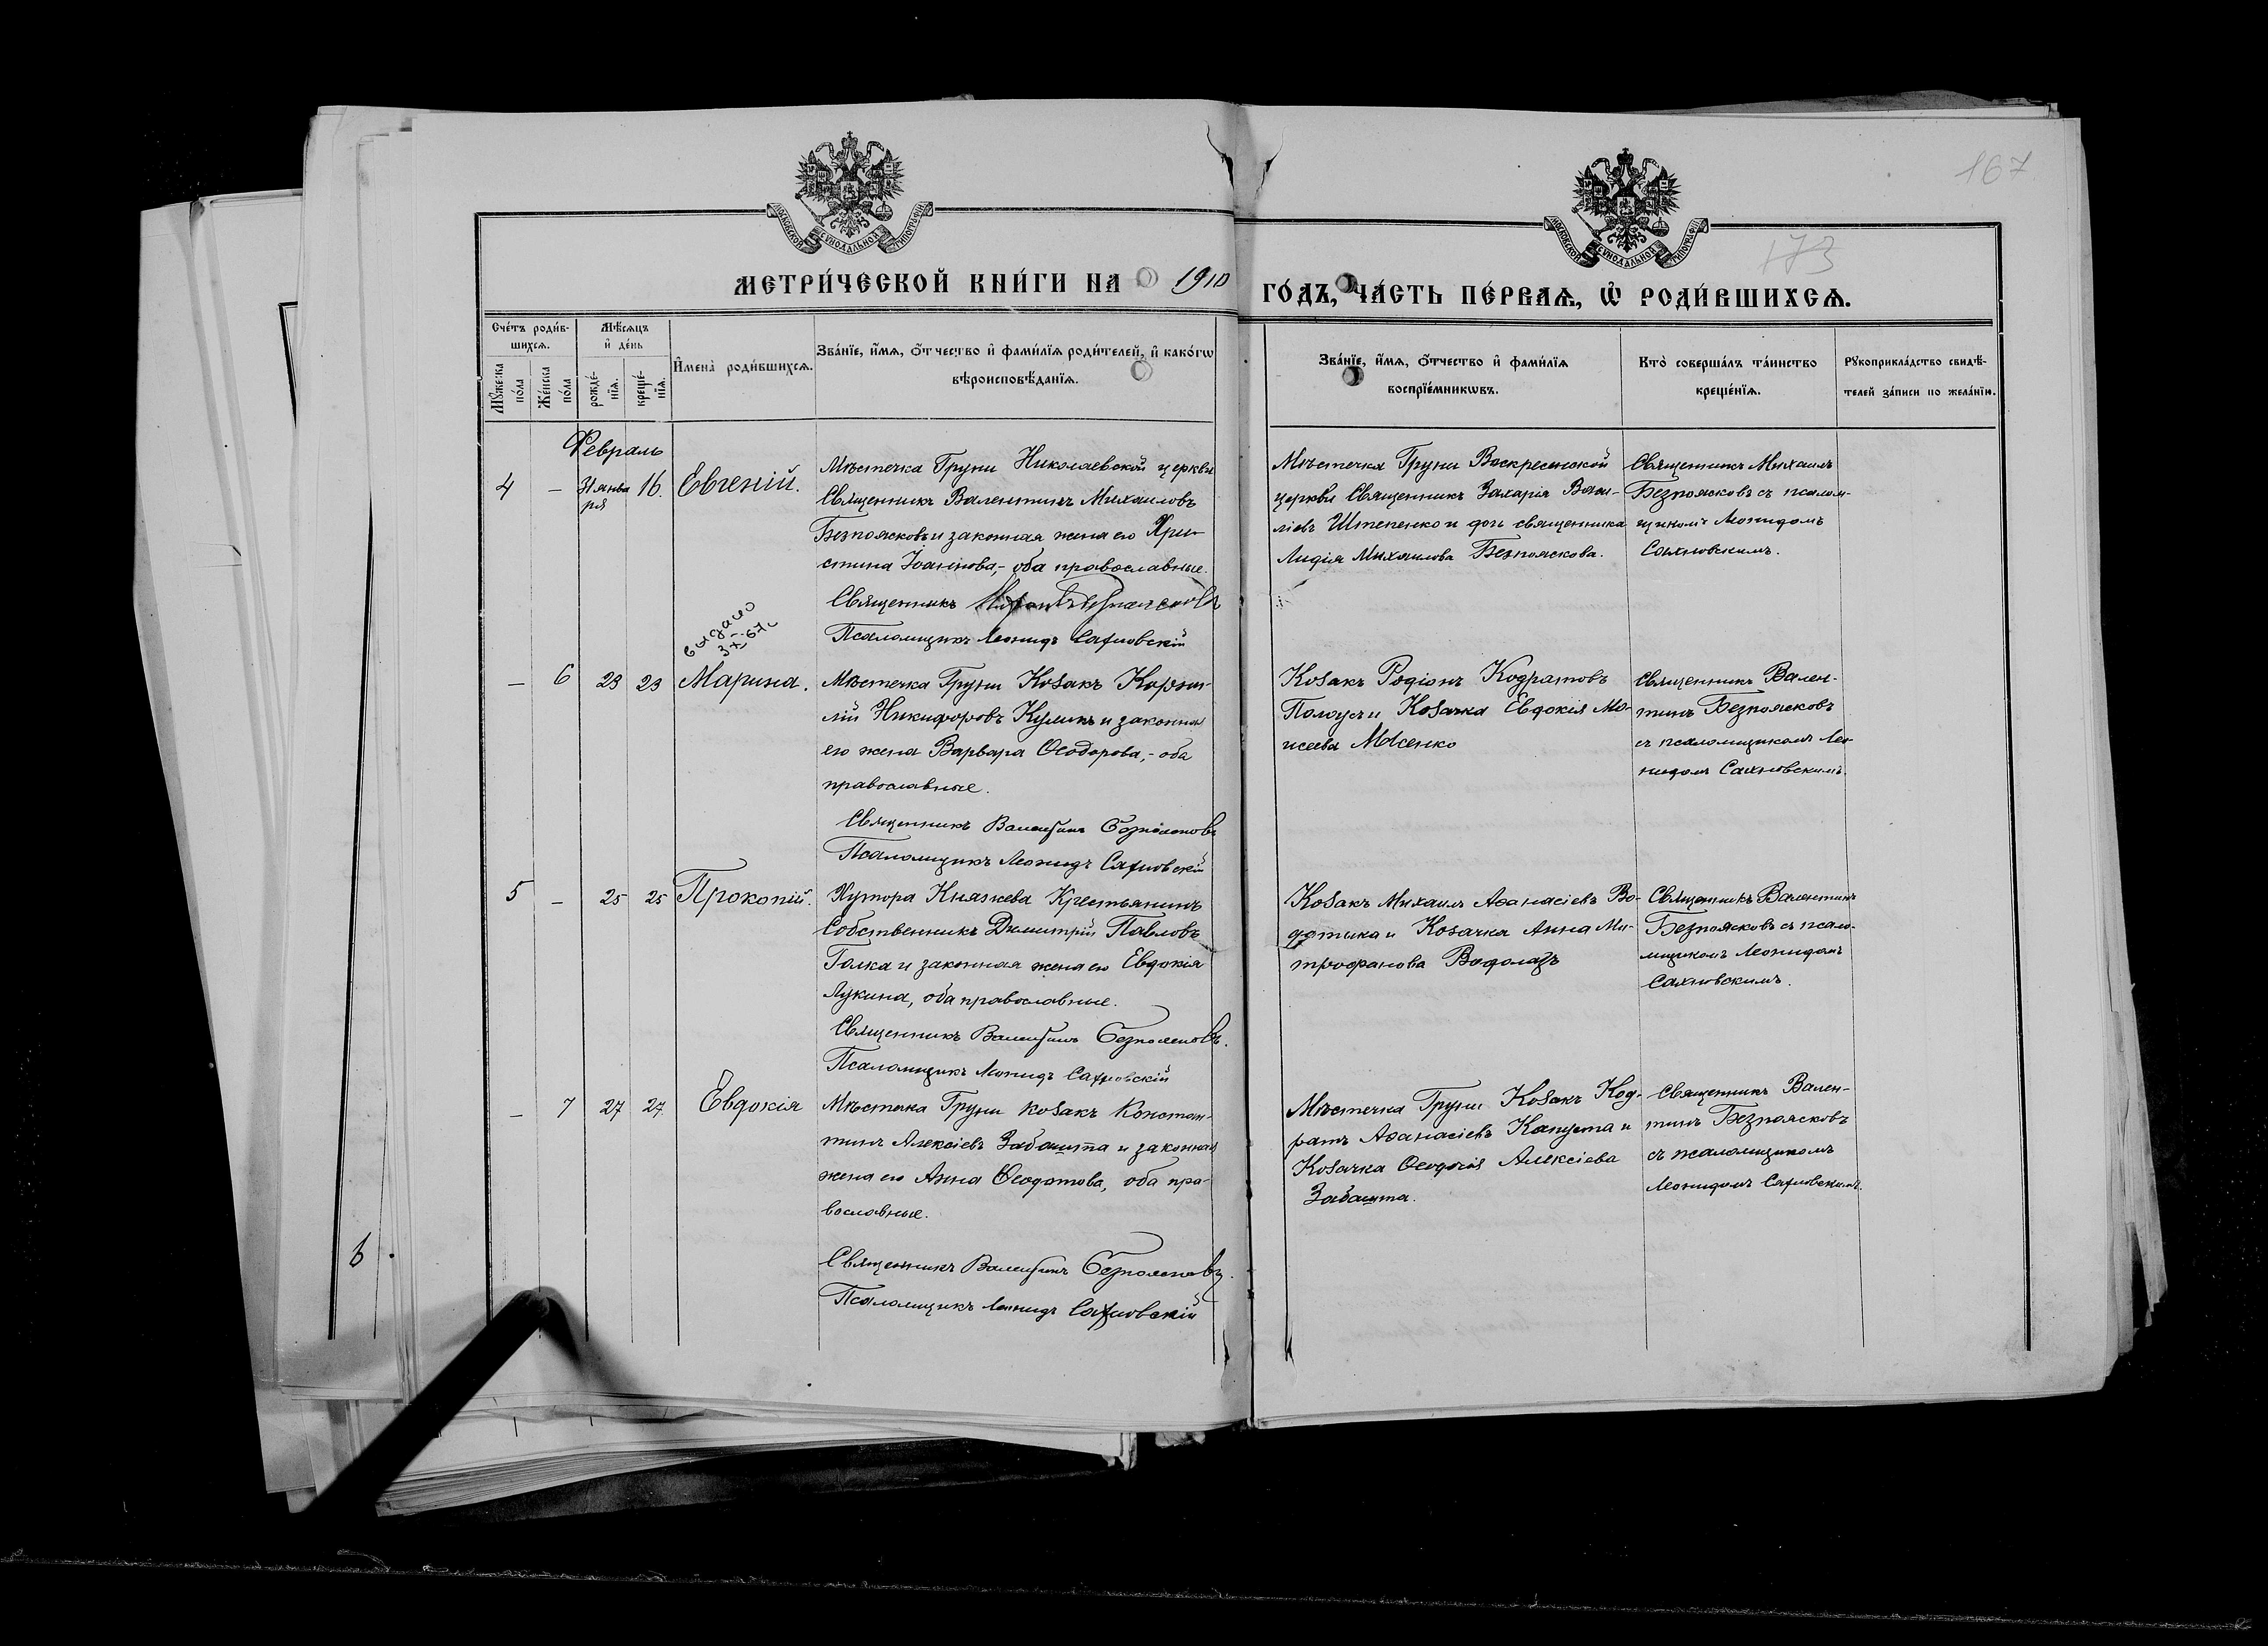 167
173
МОСКОВСКОЙ СѴНОДАЛЬНОЙ ТИПОГРАФІИ
МОСКОВСКОЙ СѴНОДАЛЬНОЙ ТИПОГРАФІИ
МЕТРИ́ЧЕСКОЙ КНИ́ГИ НА 1910
ГО́ДЪ, ЧА́СТЬ ПЕ́РВАѦ, Ѡ҆ РОДИ́ВШИХСѦ.
Сче́тъ роди́в-
шихсѧ.
Мꙋ́жеска по́ла
Же́нска по́ла
Мѣ́сѧцъ
и҆ де́нь
рожде́-
нїѧ.
креще́-
нїѧ.
И҆мена̀ роди́вшихсѧ.
Зва́нїе, и҆́мѧ, ѻ҆́тчество и҆ фами́лїѧ роди́телей, и҆ како́гѡ
вѣроисповѣ́данїѧ.
Зва́нїе, и҆́мѧ, ѻ҆́тчество и҆ фами́лїѧ
воспрїе́мникѡвъ.
Кто̀ соверша́лъ та́инство
креще́нїѧ.
Рꙋкоприкла́дство свидѣ́-
телей за́писи по жела́нїю.
Февраль
4 — 31 янва
ря
16. Евгеній.
Мѣстечка Груни Николаевской церкви
Священникъ Валентинъ Михаиловъ
Безпоясковъ и законная жена его Хри-
стина Іоаннова,- оба православные.
Священникъ
Псаломщикъ Леонидъ Сахновскій
Мѣстечка Груни Воскресенской
церкви Священникъ Захарія Васи-
ліевъ Штепенко и дочь священника
Лидія Михаилова Безпояскова.
Священникъ Михаилъ
Безпоясковъ съ псалом-
щикомъ Леонидомъ
Сахновскимъ.
— 6 23 23 Марина.
Мѣстечка Груни Козакъ Корни-
лій Никифоровъ Куликъ и законная
его жена Варвара Ѳеодорова,- оба
православные.
Священникъ Валентинъ Безпоясковъ
Псаломщикъ Леонидъ Сахновскій
Козакъ Родіонъ Кодратовъ
и Козачка Евдокія Мо-
исеева
Священникъ Вален-
тинъ Безпоясковъ
съ псаломщикомъ Лео-
нидомъ Сахновскимъ.
5 — 25 25 Прокопій.
Хутора Княжева Крестьянинъ
Собственникъ Димитрій Павловъ
Галка и законная жена его Евдокія
Лукина, оба православные.
Священникъ Валентинъ Безпоясковъ.
Псаломщикъ Леонидъ Сахновскій
Козакъ Михаилъ Аѳанасіевъ
и Козачка Анна Ми-
трофанова Водолазъ
Священникъ Валентинъ
Безпоясковъ съ псало-
мщикомъ Леонидомъ
Сахновскимъ.
— 7 27 27. Евдокія
Мѣстечка Груни козакъ Констан-
тинъ Алексіевъ Забашта и законная
жена его Анна Ѳеодотова, оба пра-
вославные.
Священникъ Валентинъ Безпоясковъ.
Псаломщикъ Леонидъ Сахновскій
Мѣстечка Груни Козакъ Код-
ратъ Аѳанасіевъ Капуста и
Козачка Ѳеодосія Алексіева
Забашта.
Священникъ Вален-
тинъ Безпоясковъ
съ псаломщикомъ
Леонидомъ Сахновскимъ.